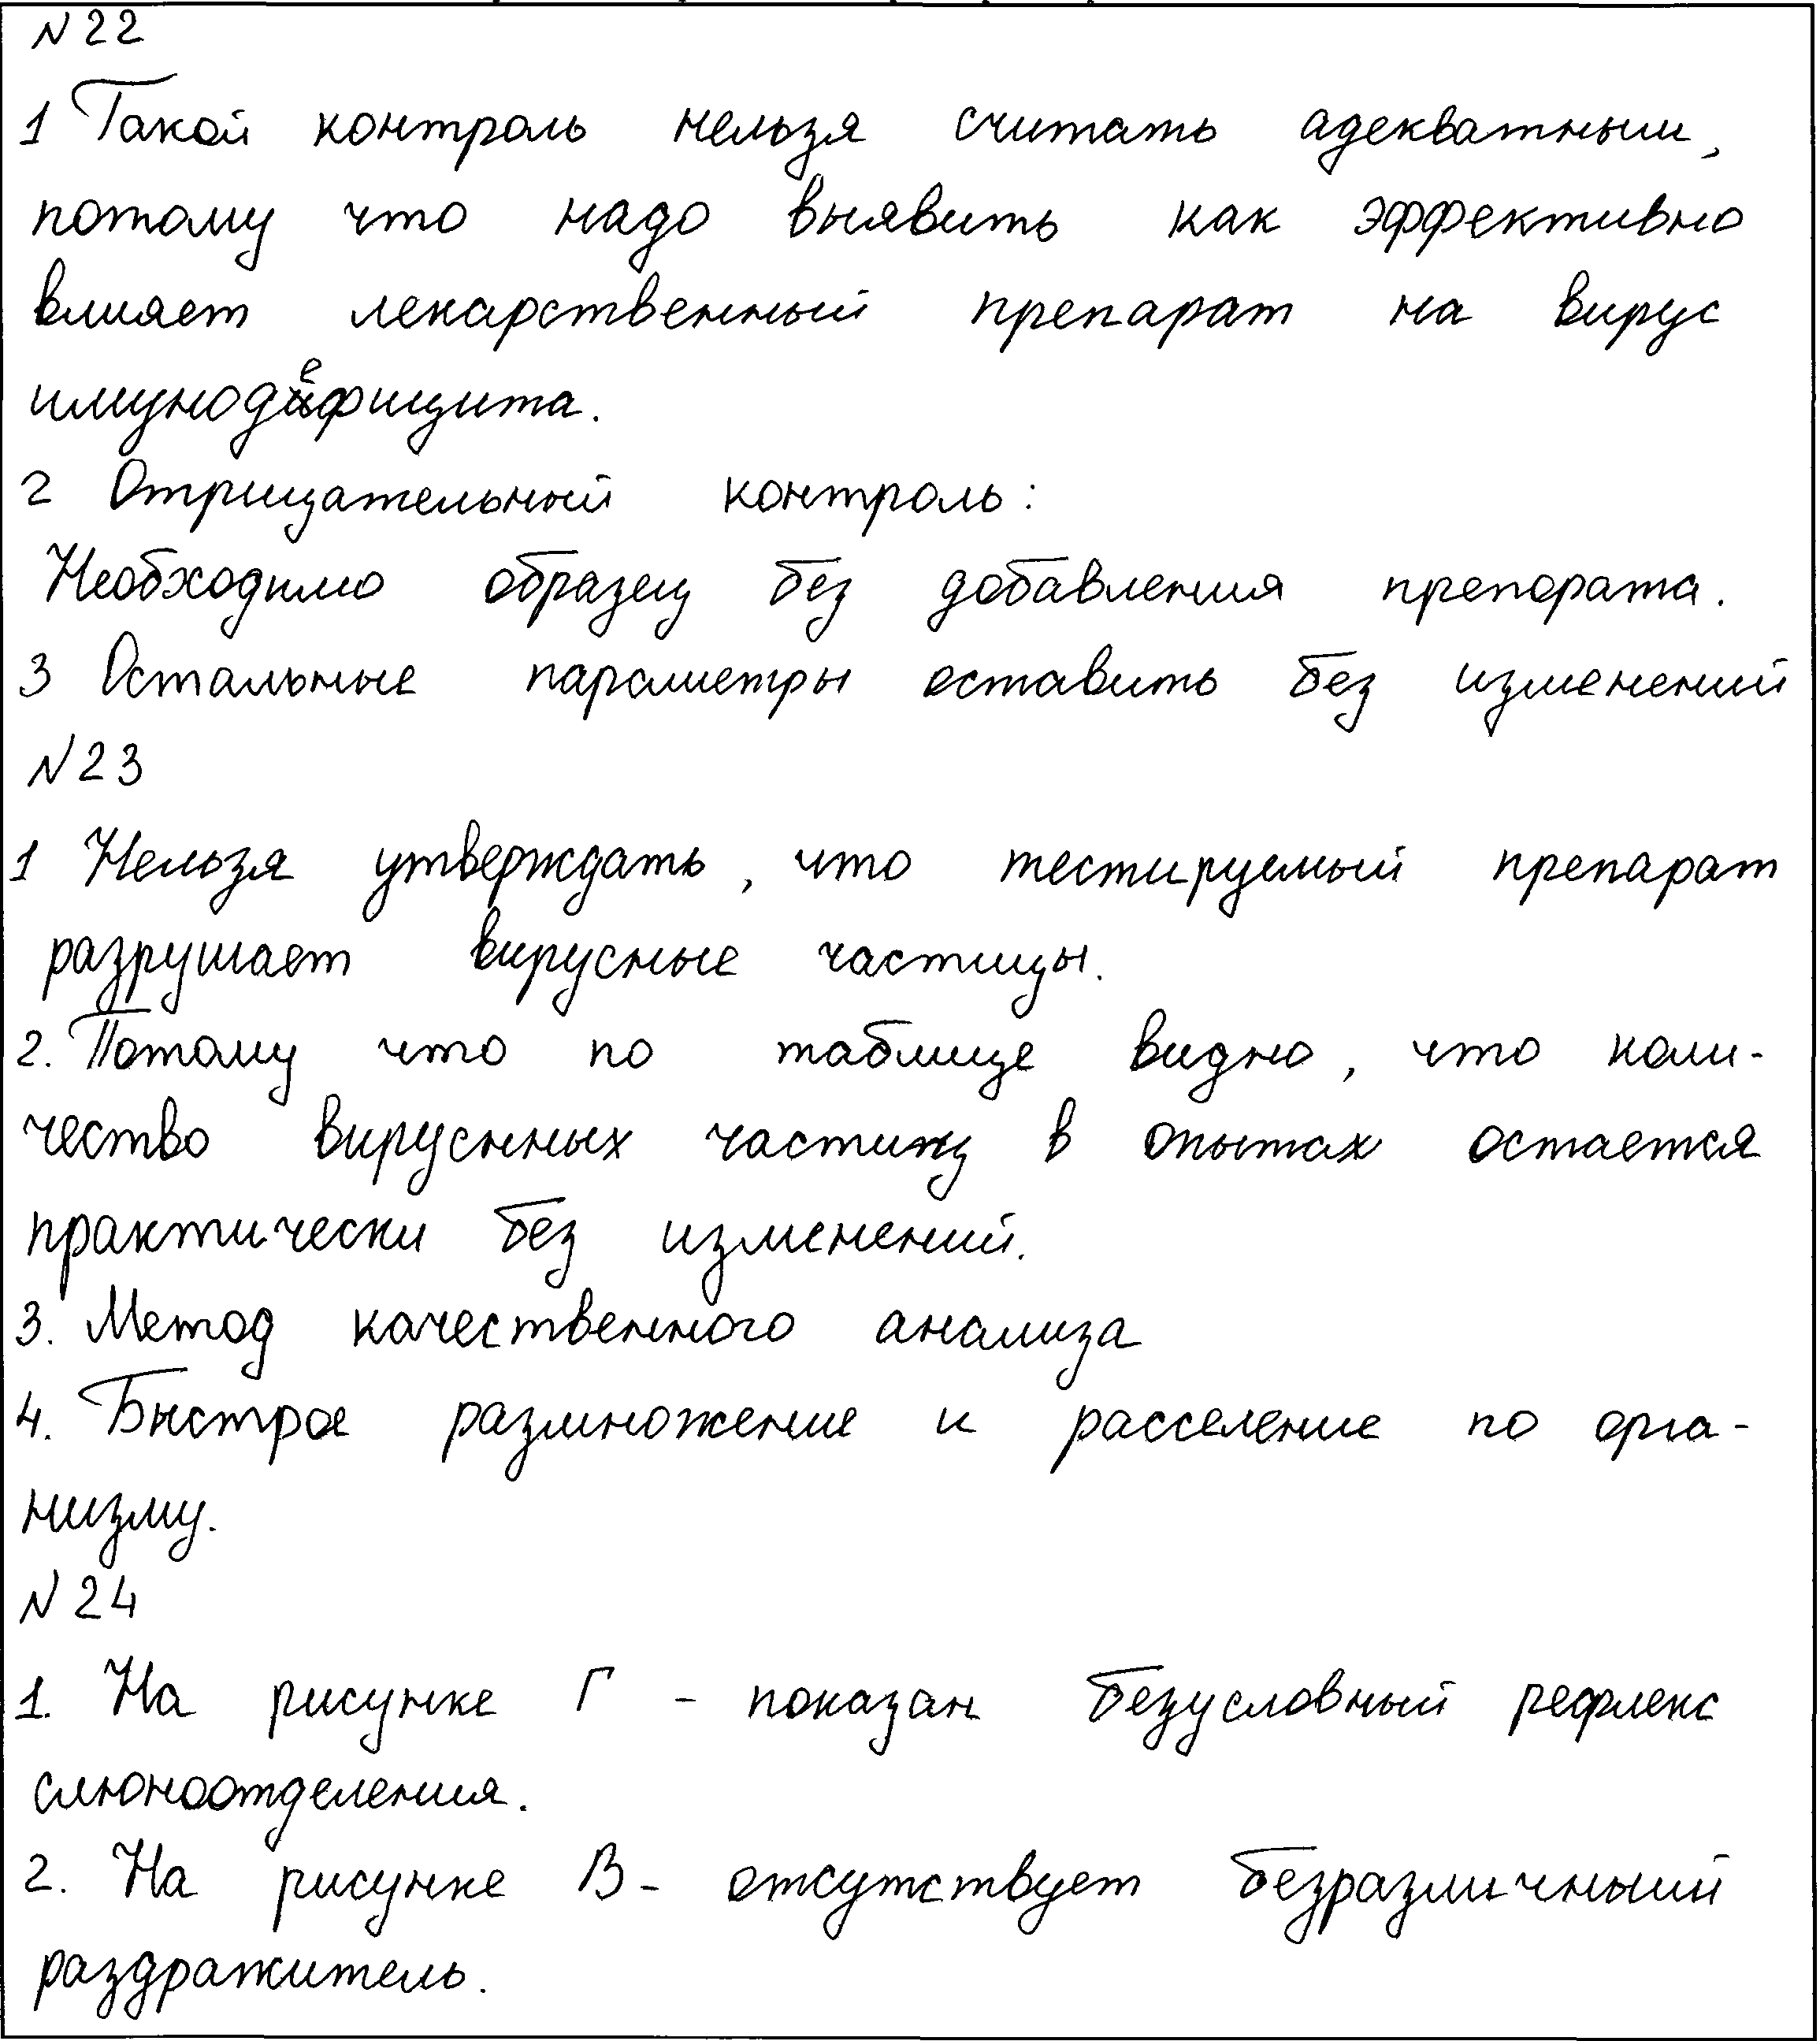 №22
1 Такой контроль нельзя считать адекватным,
потому что надо выявить как эффективно
влияет лекарственный препарат на вирус
имунодефицита.
2 Отрицательный контроль:
Необходимо образец без добавления препората.
3 Остальные параметры оставить без изменений
№23
1 Нельзя утверждать, что тестируемый препарат
разрушает вирусные частицы.
2. Потому что по таблице видно, что коли-
чество вируснных частиц в опытах остается
практически без изменений.
3. Метод качественного анализа
4. Быстрое размножение и расселение по орга-
низму.
№24
1. На рисунке Г - показан безусловный рефлекс
слюноотделения.
2. На рисунке В - отсутствует безразличный
раздражитель.